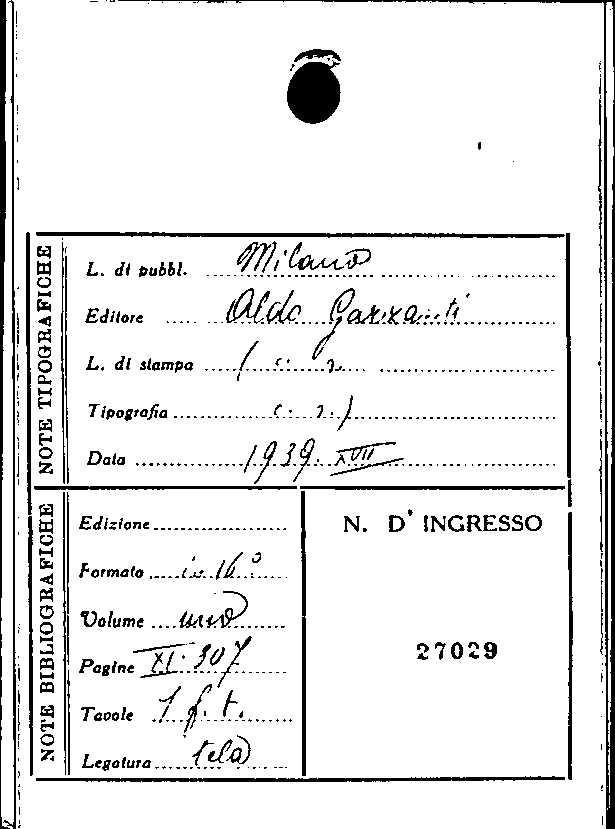 NOTE TIPOGRAFICHE
L. di pubbl. Milano
Editore Aldo Garzanti
L. di stampa (
Tipografia )
Data 1939. XVII
NOTE BIBLIOGRAFICHE
Edizione
Formato in 16°
Volume uno
Pagine XI-307
Tavole 1 f. t.
Legatura tela
N. D' INGRESSO
27029